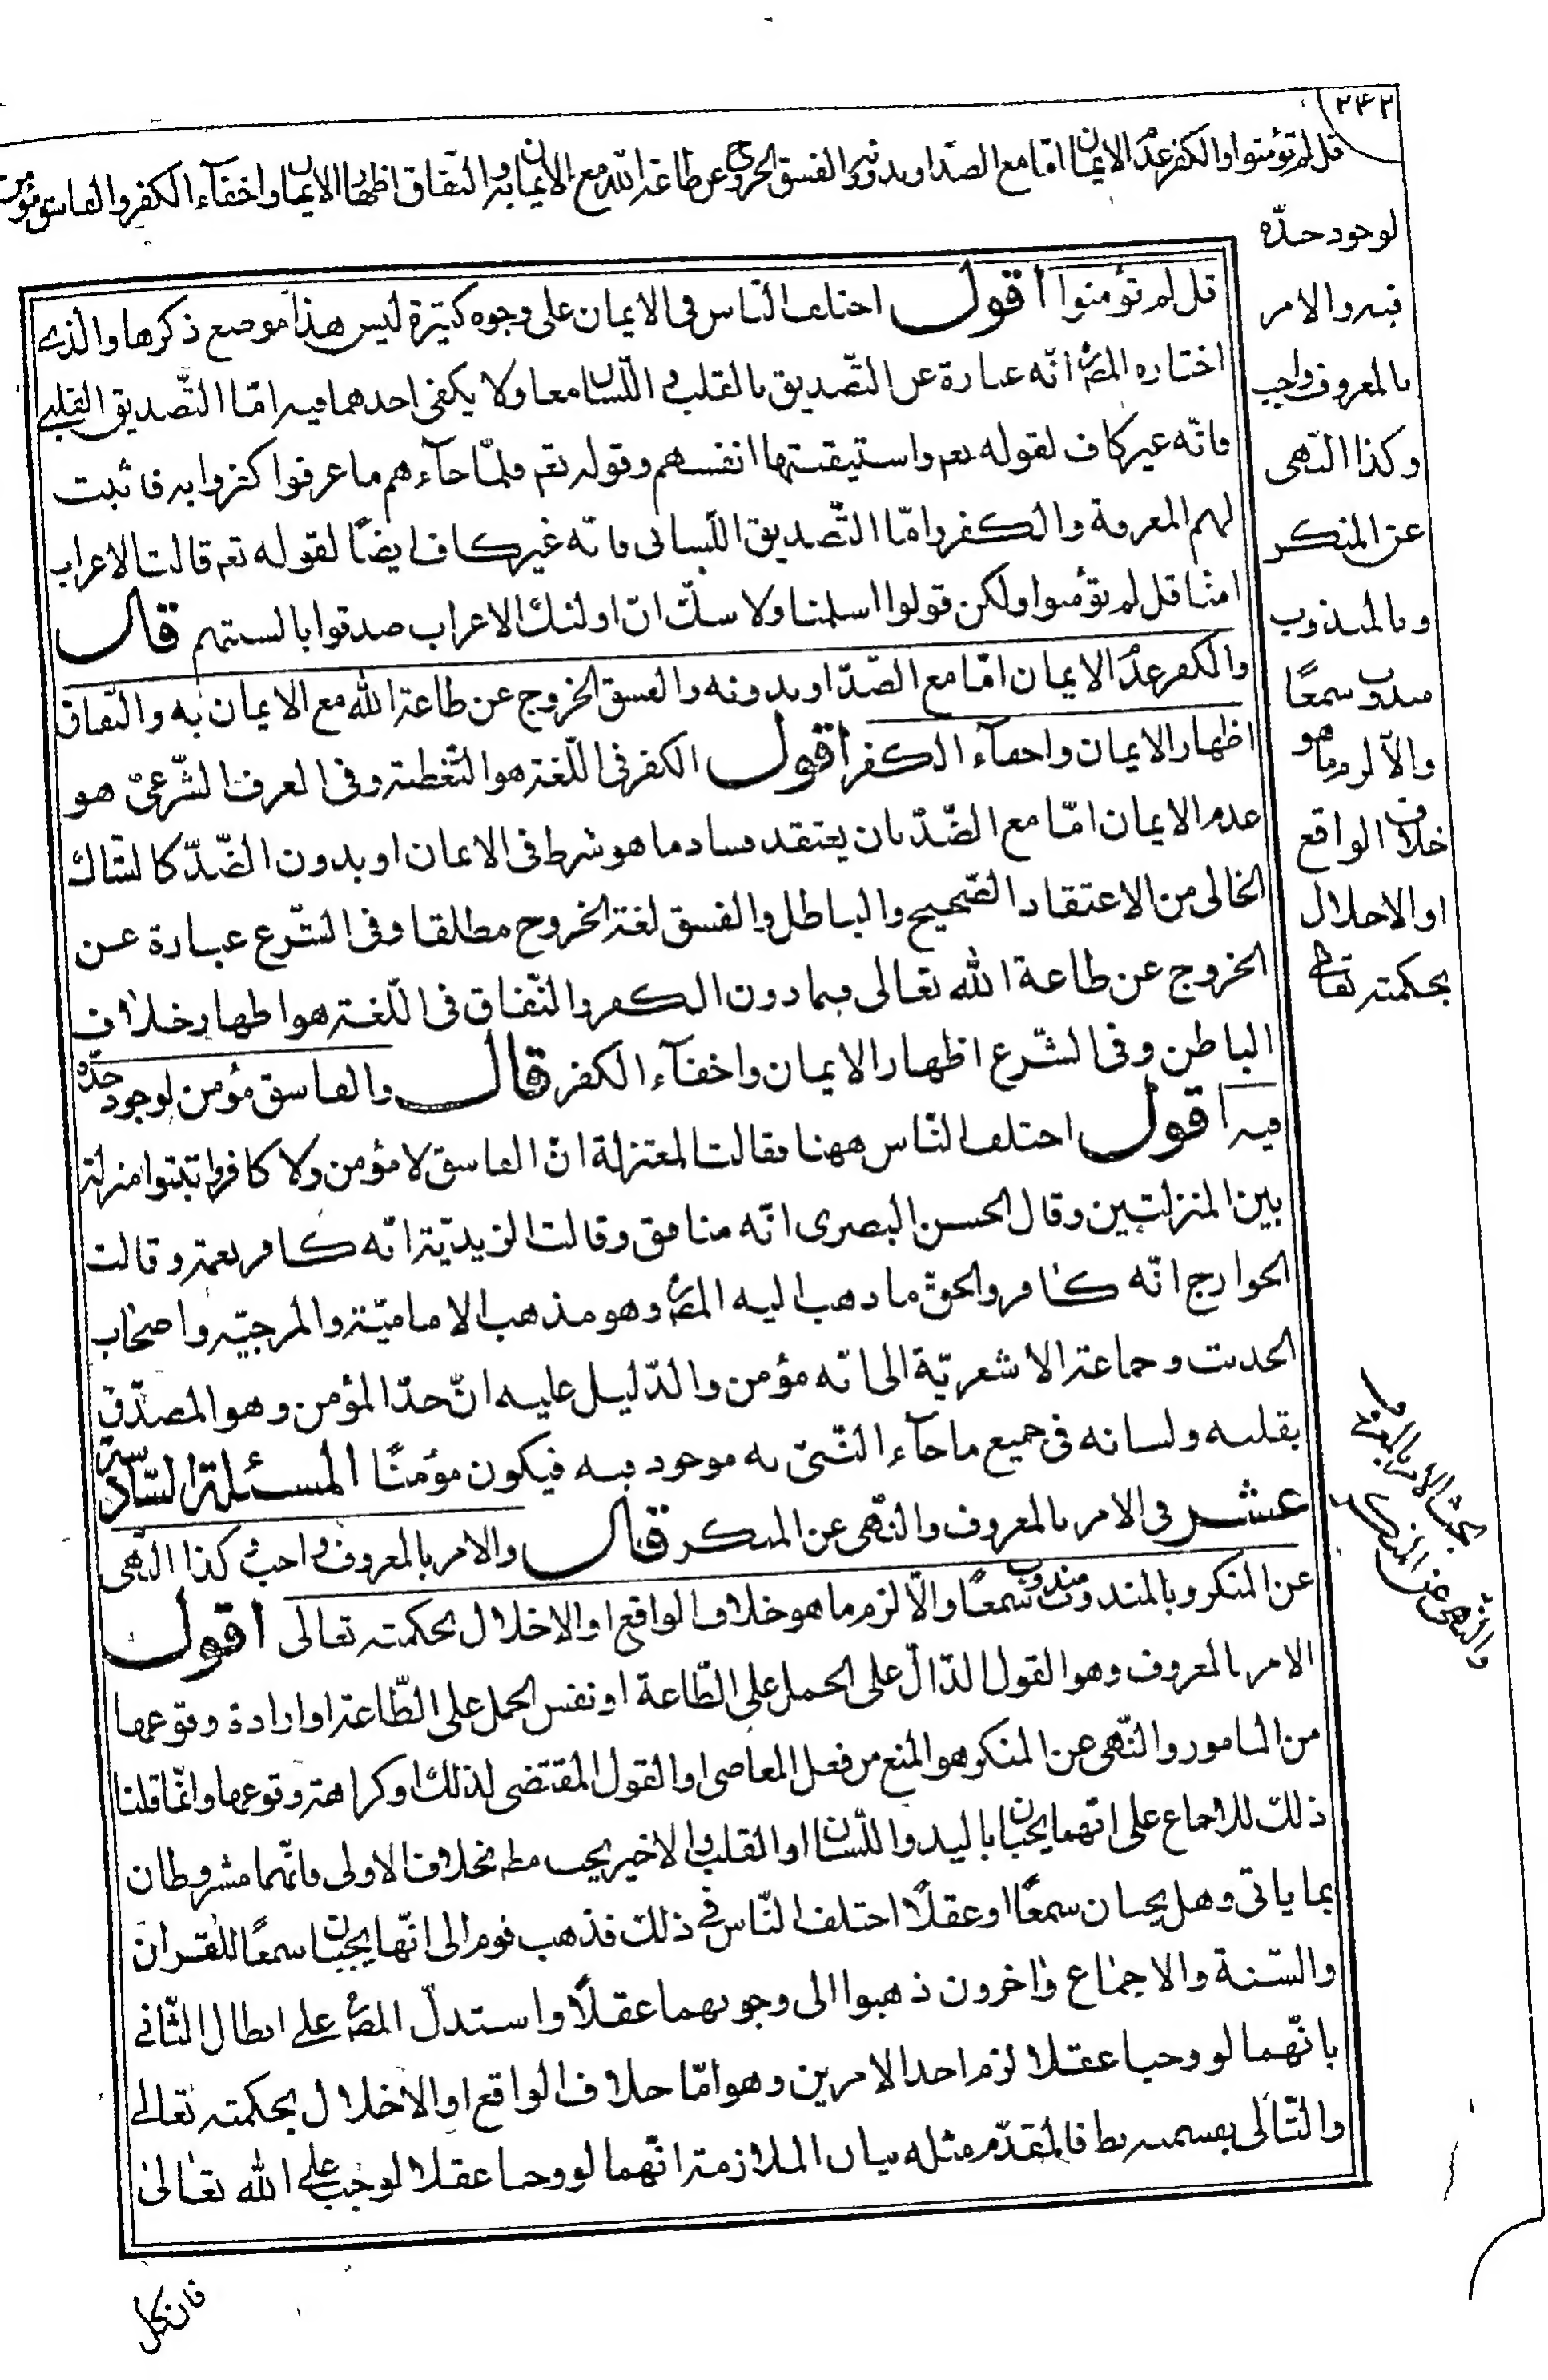 ٢٤٢
قل لم تؤمنوا والكفر عدم الايمان اما مع الضد او بدونه والفسق الخروج عن طاعة الله مع الايمان به والنفاق اظهار الايمان واخفاء الكفر والفاسق مؤمن
لوجود حدّه
فيه والامر
بالمعروف واجب
وكذا النهى
عن المنكر
وبالمندوب
مندوب سمعًا
والّا لزم ما هو
خلاف الواقع
او الاخلال
بحكمته تعالى
قل لم تؤمنوا اقول اختلف النّاس فى الايمان على وجوه كثيرة ليس هذا موضع ذكرها والذى
اختاره المصؒ انّه عبارة عن التّصديق بالقلب و اللّسان معا ولا يكفى احدهما فيه امّا التّصديق القلبى
فانّه غير كاف لقوله تعم واستيقنتها انفسهم وقوله تعم فلمّا جاءهم ما عرفوا كفروا به فاثبت
لهم المعرفة والكفر وامّا التّصديق اللّسانى فانّه غير كاف ايضًا لقوله تعم قالت الاعراب
امنّا قل لم تؤمنوا ولكن قولوا اسلمنا ولا شكّ انّ اولئك الاعراب صدقوا بالسنتهم قال
والكفر عدم الايمان امّا مع الضّدّ او بدونه والفسق الخروج عن طاعة الله مع الايمان به والنّفاق
اظهار الايمان واخفاء الكفر اقول الكفر فى اللّغة هو التّغطية وفى العرف الشّرعىّ هو
عدم الايمان امّا مع الضّدّ بان يعتقد فساد ما هو شرط فى الايمان او بدون الضّدّ كالشّاك
الخالى من الاعتقاد الصّحيح والباطل والفسق لغة الخروج مطلقا وفى الشّرع عبارة عن
الخروج عن طاعة الله تعالى فيما دون الكفر والنّفاق فى اللّغة هو اظهار خلاف
الباطن وفى الشّرع اظهار الايمان واخفاء الكفر قال والفاسق مؤمن لوجود حدّه
فيه اقول اختلف النّاس ههنا فقالت المعتزلة انّ الفاسق لا مؤمن ولا كافر واثبتوا منزلة
بين المنزلتين وقال الحسن البصرى انّه منافق وقالت الزيديّة انّه كافر نعمة وقالت
الخوارج انّه كافر والحقّ ما ذهب اليه المصؒ وهو مذهب الاماميّة والمرجئة واصحاب
الحديث وجماعة الاشعريّة الى انّه مؤمن والدّليل عليه انّ حدّ المؤمن وهو المصدّق
بقلبه ولسانه فى جميع ما جاء النّبىّ به موجود فيه فيكون مؤمنًا المسئلة السّادسة
عشر فى الامر بالمعروف والنّهى عن المنكر قال والامر بالمعروف واجب و كذا النّهى
عن المنكر وبالمندوب مندوب سمعًا والّا لزم ما هو خلاف الواقع او الاخلال بحكمته تعالى اقول
الامر بالمعروف وهو القول الدّالّ على الحمل على الطّاعة او نفس الحمل على الطّاعة او ارادة وقوعها
من المامور والنّهى عن المنكر هو المنع من فعل المعاصى او القول المقتضى لذلك او كراهة وقوعها وانّما قلنا
ذلك للاجماع على انّهما يجبان باليد واللّسان او القلب والاخير يجب مطم بخلاف الاولى فانّهما مشروطان
بما ياتى وهل يجبان سمعًا او عقلًا اختلف النّاس فى ذلك فذهب قوم الى انّهما يجبان سمعًا للقران
والسّنة والاجماع واخرون ذهبوا الى وجوبهما عقلًا واستدلّ المصؒ على ابطال الثّانى
بانّهما لو وجبا عقلا لزم احد الامرين وهو امّا خلاف الواقع او الاخلال بحكمته تعالى
والتّالى بقسميه بط فالمقدّم مثله بيان الملازمة انّهما لو وجبا عقلا لوجب على الله تعالى
بحث الامر بالمعروف
والنهى عن المنكر
فان كل